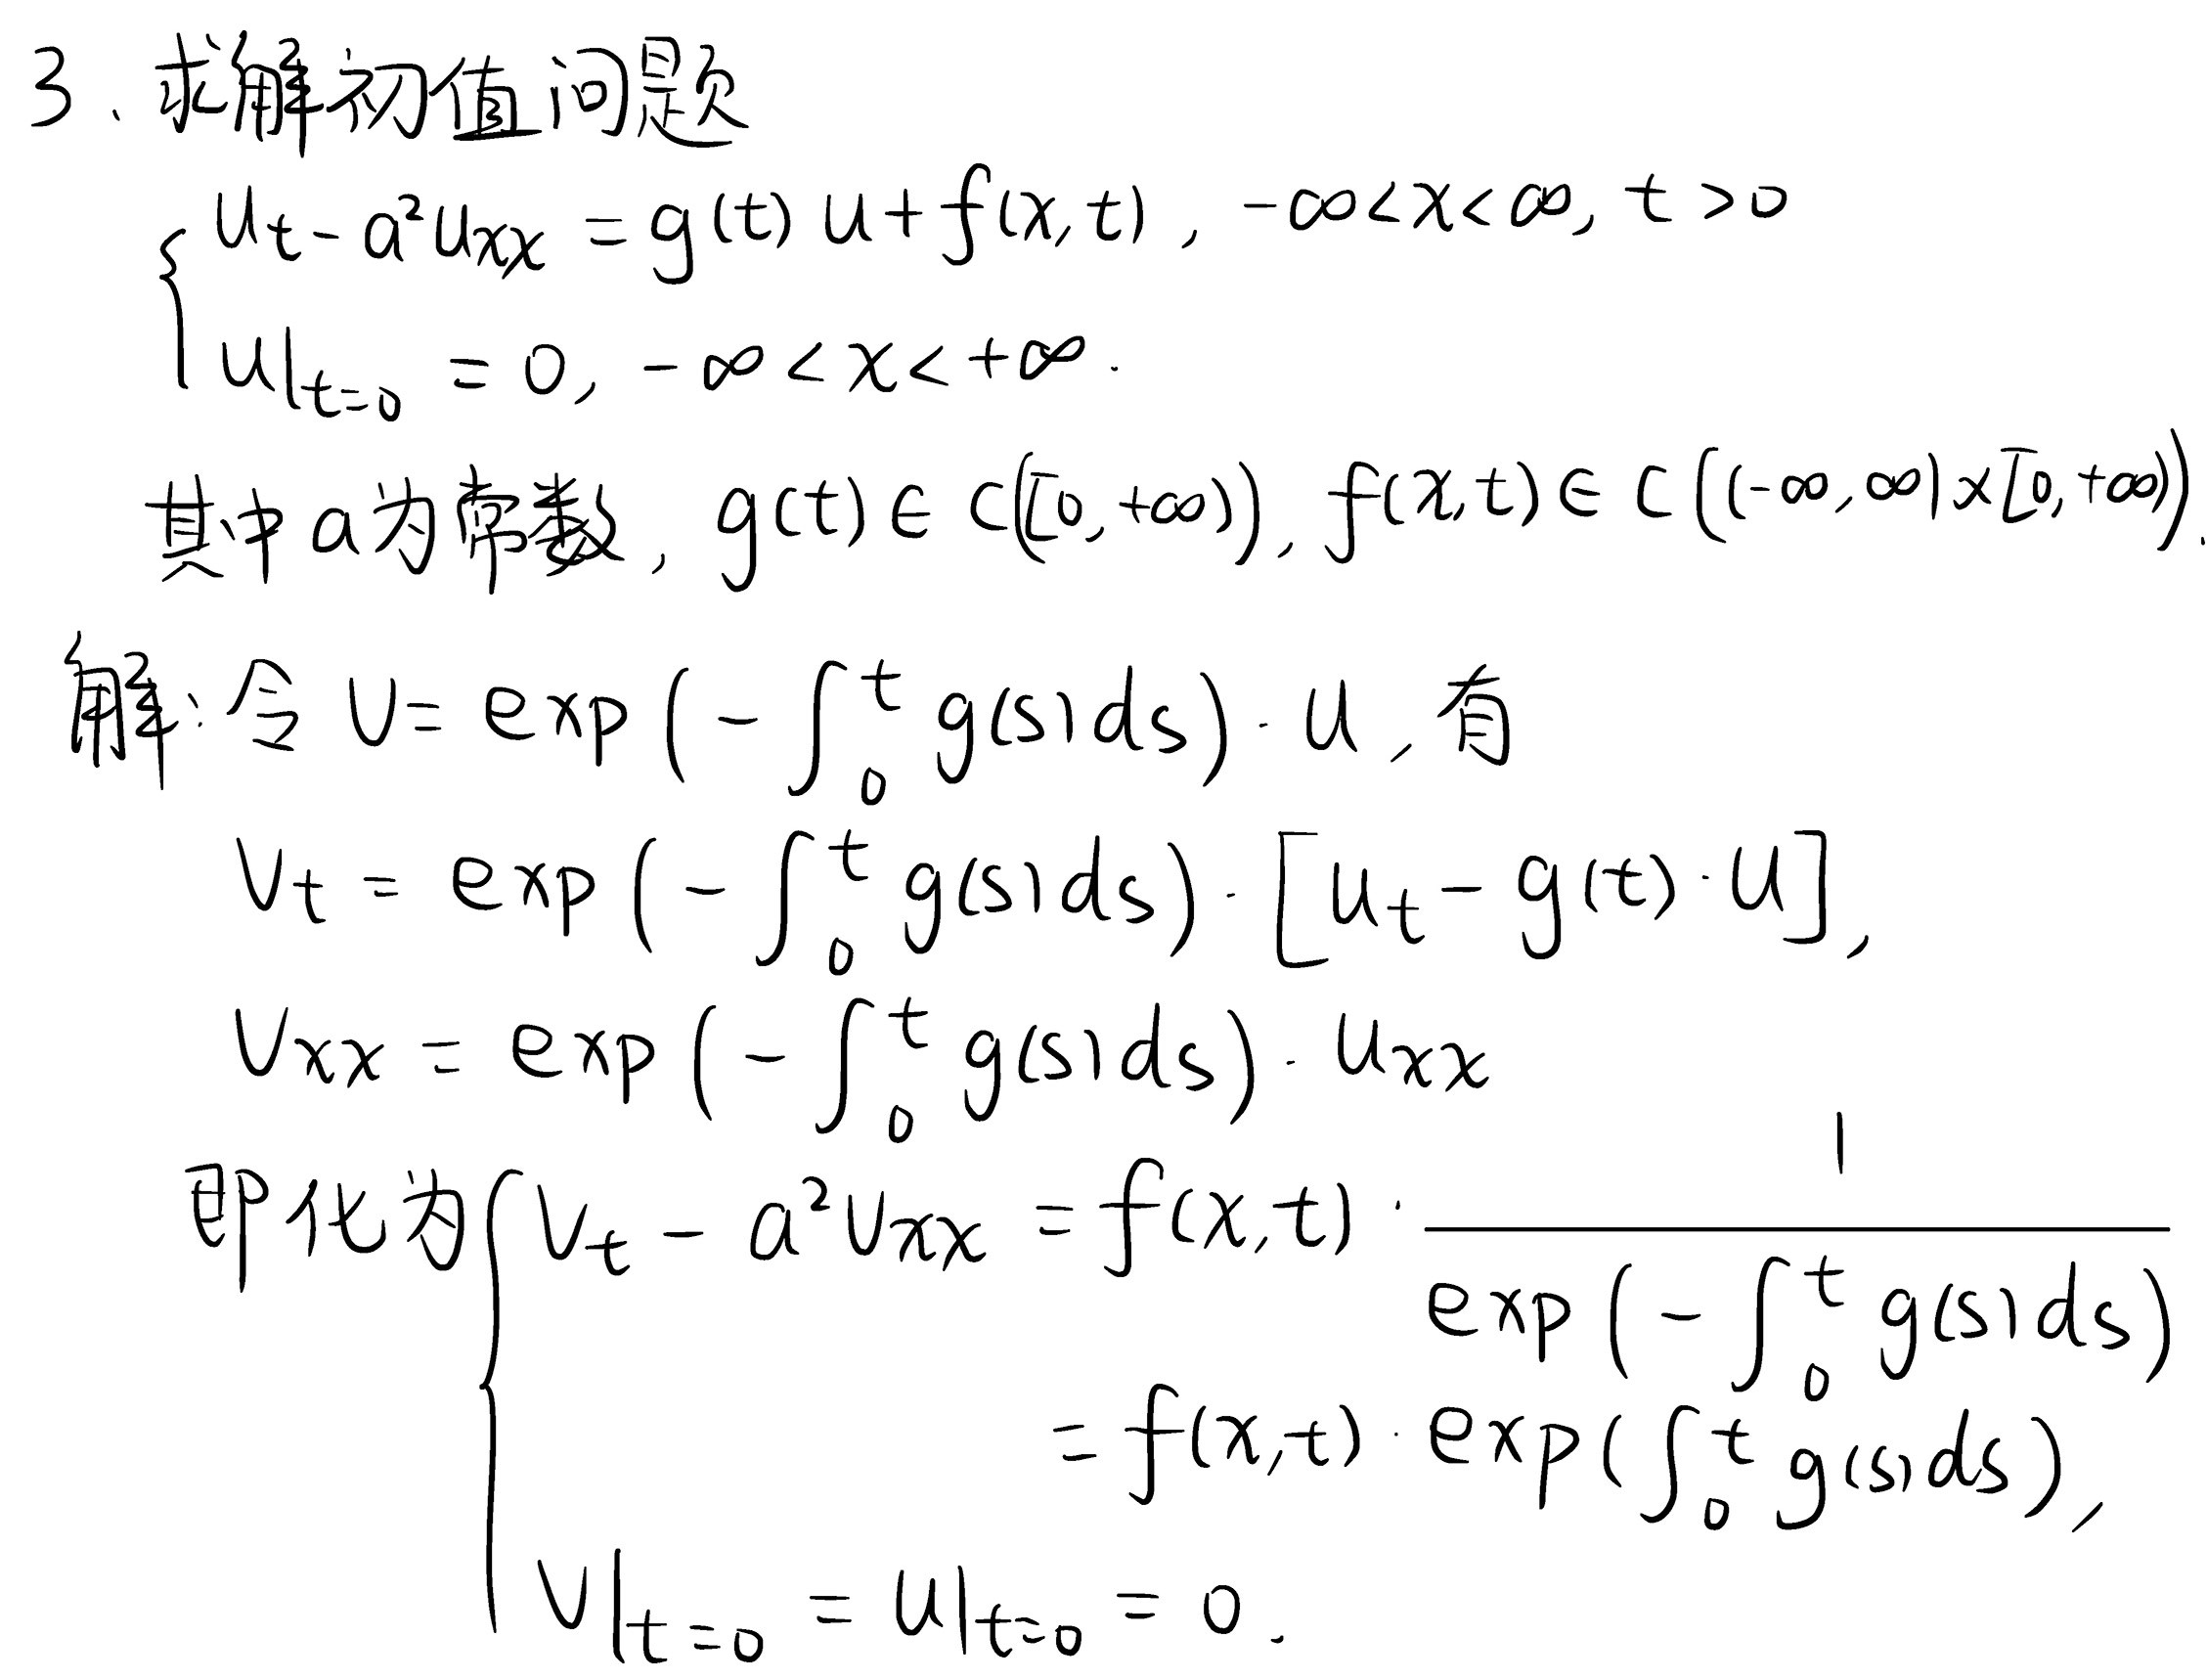 3、求解初值问题
{ u_t - a²u_xx = g(t) u + f(x,t), -∞<x<∞, t>0
u|_{t=0} = 0, -∞<x<+∞.
其中a为常数, g(t)∈C([0,+∞)), f(x,t)∈C((-∞,∞)×[0,+∞)).
解: 令 V = exp(-∫_0^t g(s)ds)·u, 有
V_t = exp(-∫_0^t g(s)ds)·[u_t - g(t)·u],
V_xx = exp(-∫_0^t g(s)ds)·u_xx
即化为 { V_t - a²V_xx = f(x,t)·1/exp(-∫_0^t g(s)ds)
= f(x,t)·exp(∫_0^t g(s)ds),
V|_{t=0} = u|_{t=0} = 0.